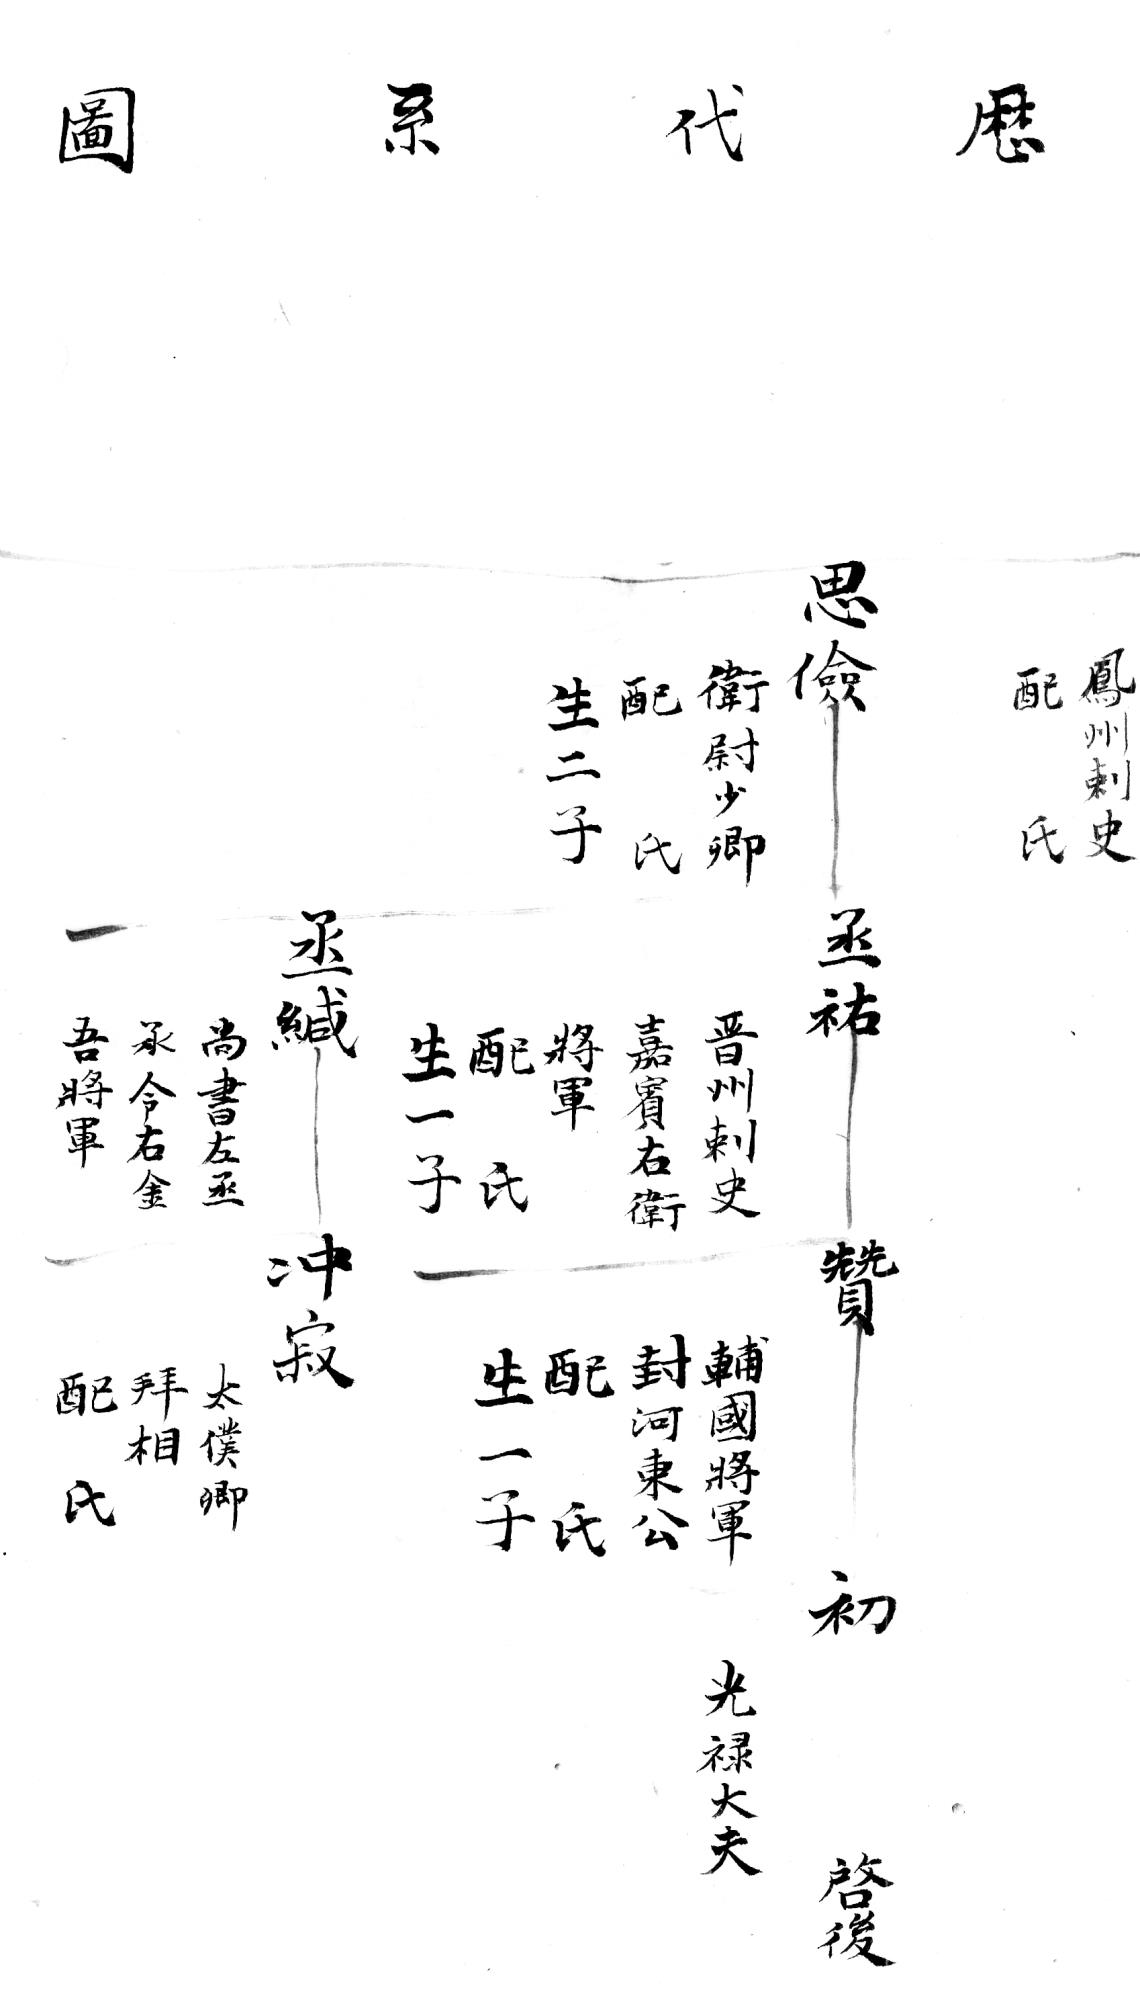 歷代系圖
鳳州刺史
配 氏
思儉
衛尉少卿
配 氏
生二子
丞祐
晋州刺史
嘉賓右衛
將軍
配 氏
生一子
丞緘
尚書左丞
承令右金
吾將軍
贊
輔國將軍
封河東公
配 氏
生一子
冲寂
太僕卿
拜相
配 氏
初
光禄大夫
啓後